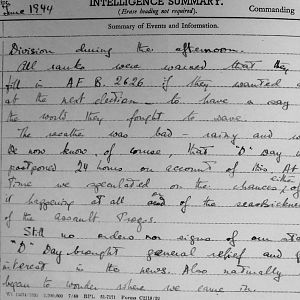 INTELLIGENCE SUMMARY.
(Erase heading not required).
Commanding
June 1944
Summary of Events and Information.
Division during the afternoon.
All ranks were warned that they
fill in A F B. 2626 if they wanted a
at the next election – to have a say
the world they fought to save.
The weather was bad – rainy and w
We now know, of course, that "D" Day w
postponed 24 hours on account of this. At
time we speculated on the chances of either
it happening at all or of the seasickness
of the assault troops.
Still no orders nor signs of our
"D" Day brought general relief and
interest in the news. Also naturally
began to wonder where we came in.